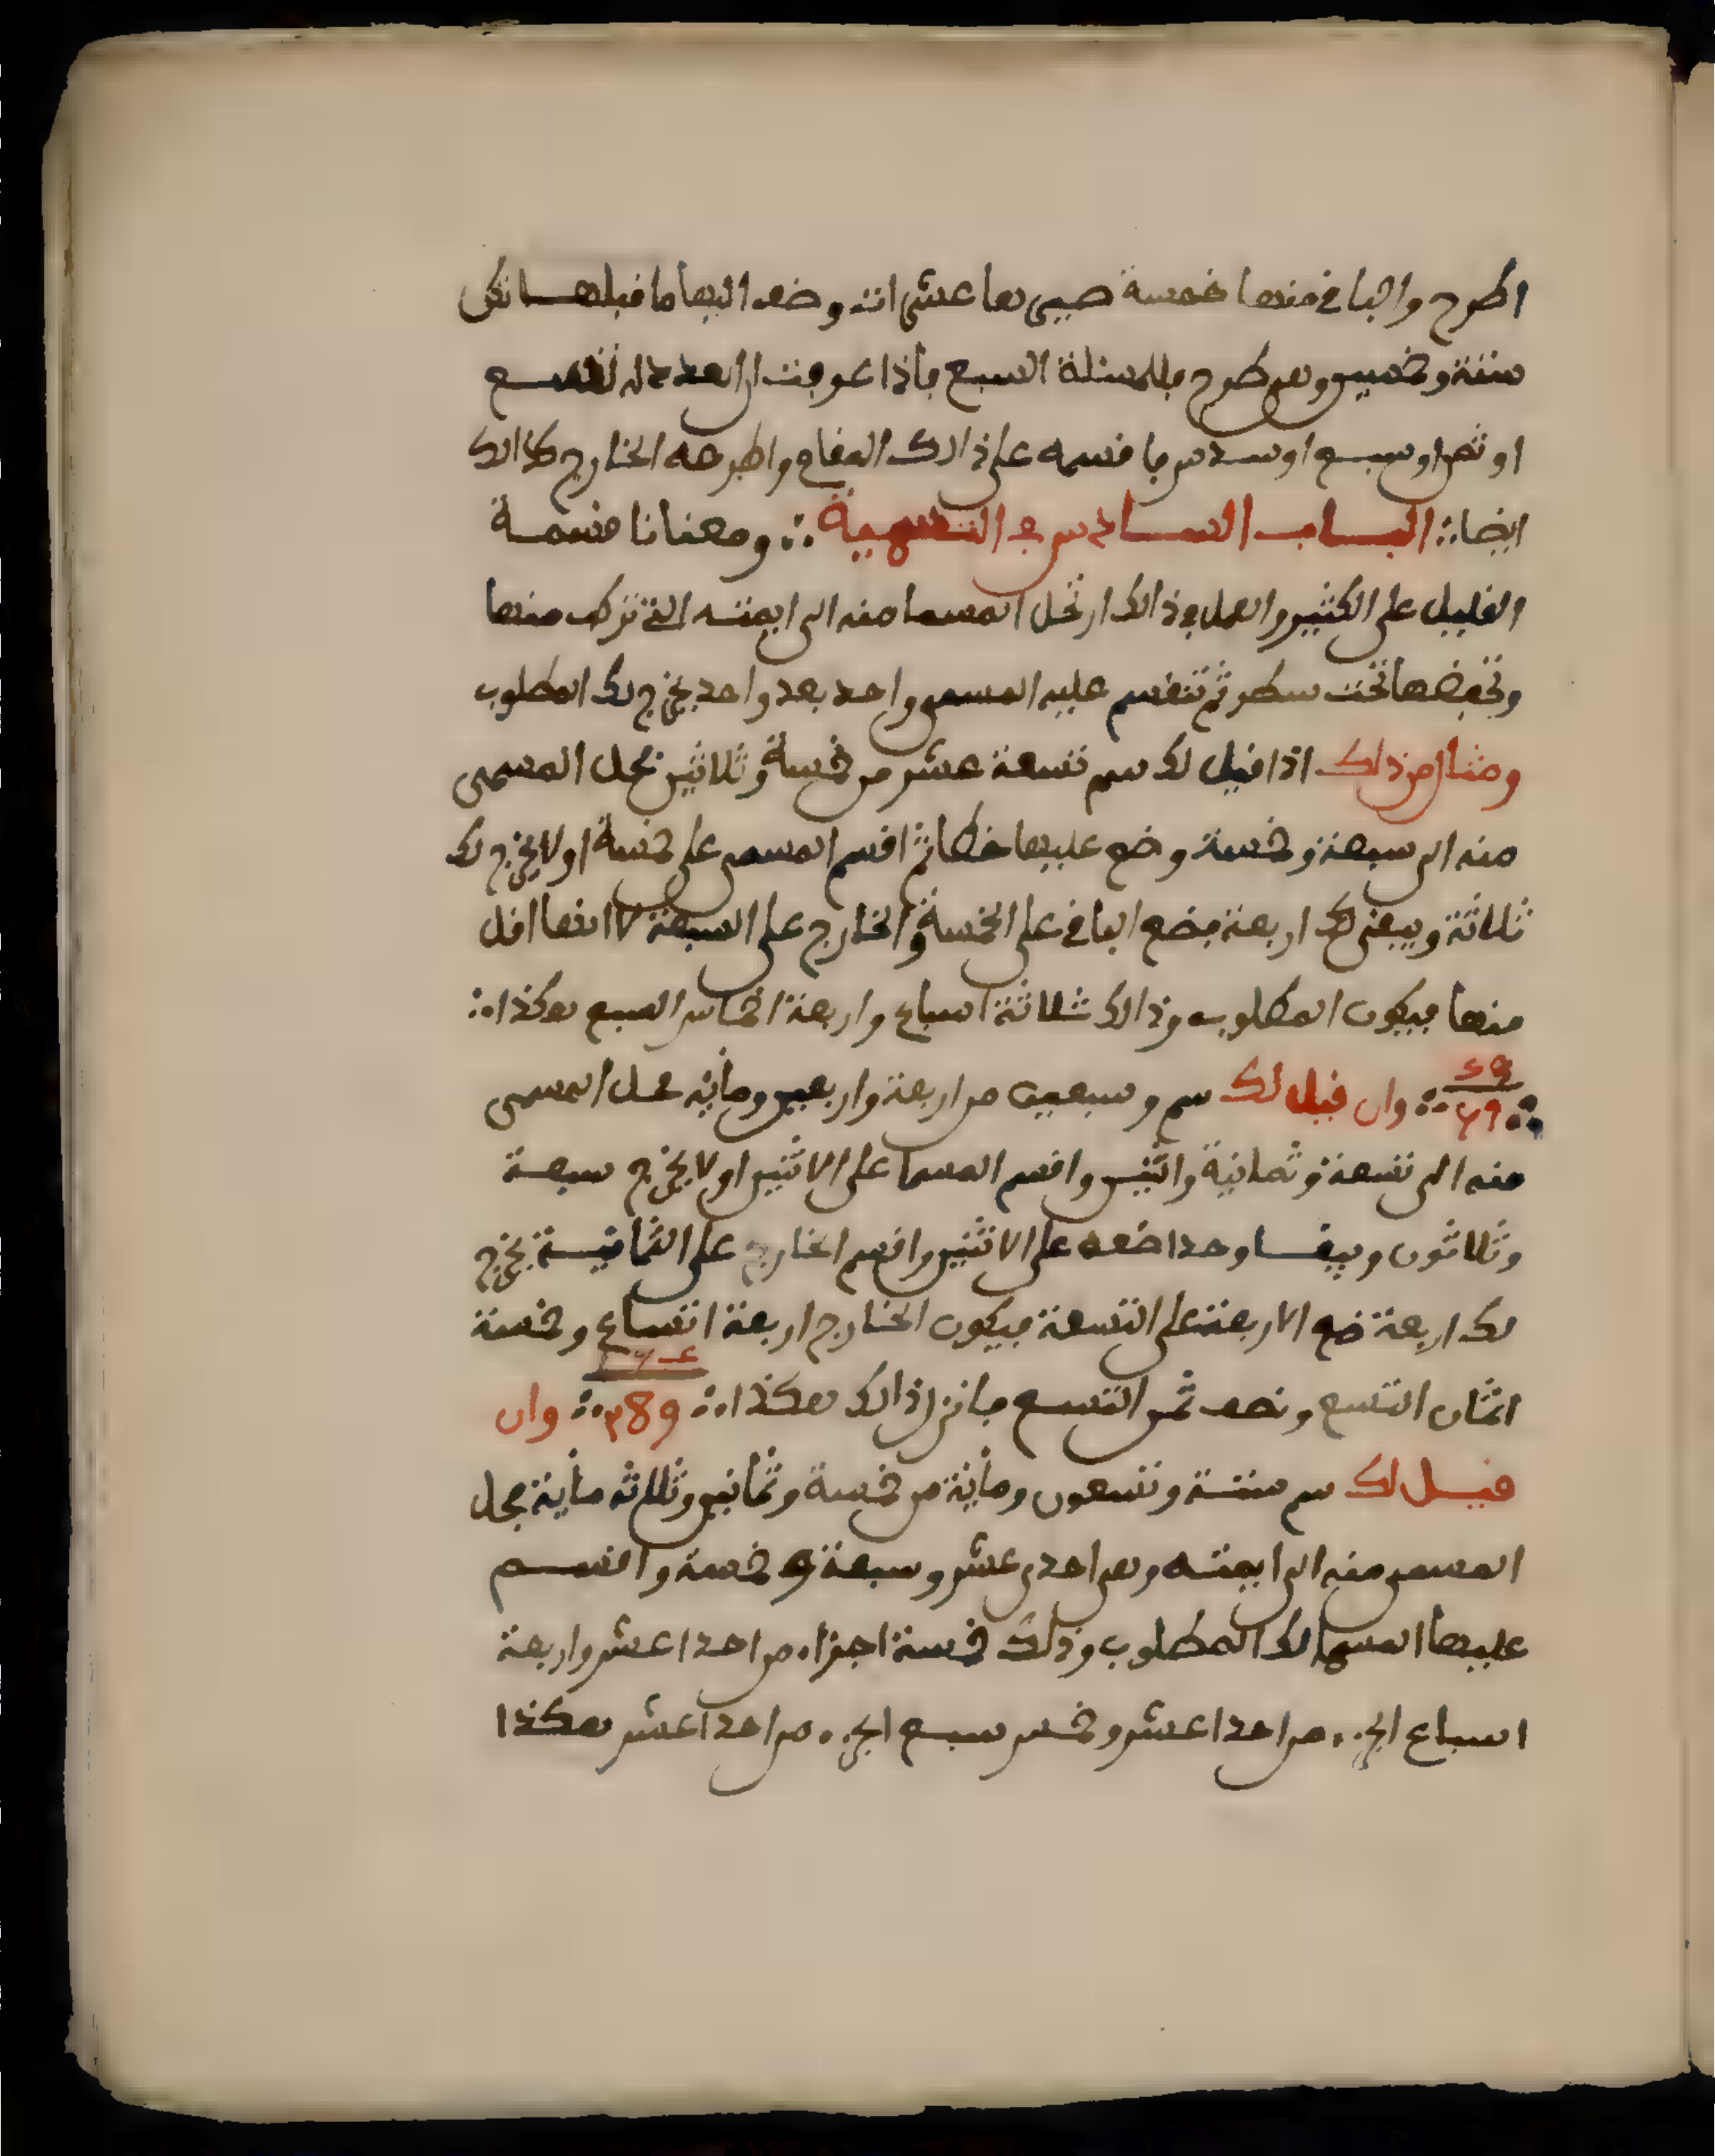 اطرح والباقي منها خمسة صيرها عشرا انت وضف اليها ما قبلها تكن
ستة وخمسين وهو طرح بالمسئلة السبع فاذا عرفت ان العدد له تسع
او ثمن او سبع او سدس فاقسمه على ذالك المقام واطرحه الخارج كذالك
ايضا ∴ البــاب الســادس في التسمية ∴ ومعنانا قسمــة
القليل على الكثير والعمل في ذالك ان تحل المسما منه الى ايمته التي تركب منها
وتخفضها تحت سطر ثم تنقسم عليه المسمى واحد بعد واحد يخرج لك المطلوب
ومثال من ذلك اذا قيل لك سم تسعة عشر من خمسة وثلاثين فحل المسمى
منه الى سبعة وخمسة وضع عليها خطا ثم اقسم المسمى على خمسة اولا يخرج لك
ثلاثة ويبقى لك اربعة فضع الباقي على الخمسة والخارج على السبعة لانها اقل
منها فيكون المطلوب وذالك ثلاثة اسباع واربعة اخماس السبع هكذا ∴
∴ وان قيل لك سم وسبعين من اربعة واربعين ومائة فحل المسمى
منه الى تسعة وثمانية واثنين واقسم المسما على الاثنين اولا يخرج سبعة
وثلاثون ويبقا وحدا ضعه على الاثنين واقسم الخارج على الثمانيــة يخرج
لك اربعة ضع الاربعة على التسعة فيكون الخارج اربعة اتساع وخمسة
اثمان التسع ونصف ثمن التسع فانزل ذالك هكذا ∴ ∴ وان
قيــل لك سم ستــة وتسعون ومائة من خمسة وثمانين وثلاثه مائة فحل
المسمى منه الى ايمته وهي احدى عشر وسبعة وخمسة واقســم
عليها المسما لك المطلوب وذلك خمسة اجزاء من احدا عشر واربعة
اسباع الجزء من احدا عشر وخمس سبع الجزء من احدا عشر هكذا